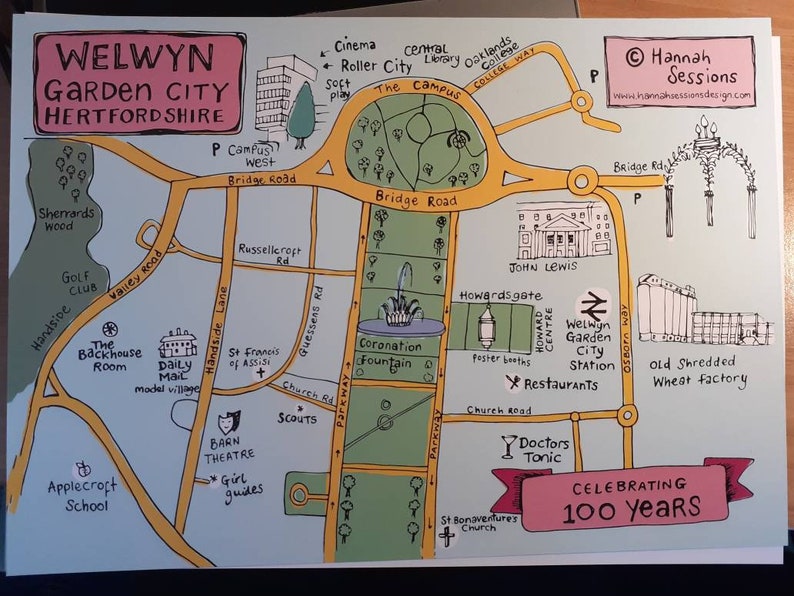 WELWYN
GARDEN CITY
HERTFORDSHIRE
Cinema
Roller City
Soft
play
Central
Library
Oaklands
College
COLLEGE WAY
P
© Hannah
Sessions
www.hannahsessionsdesign.com
The Campus
P Campus
West
Bridge Road
Bridge Road
Bridge Rd
P
Sherrards
Wood
GOLF
CLUB
Handside
Valley Road
Russellcroft
Rd
Handside Lane
Guessens Rd
JOHN LEWIS
Howardsgate
HOWARD
CENTRE
poster booths
Welwyn
Garden
City
Station
OSBORN WAY
Old Shredded
Wheat factory
The
Backhouse
Room
DAILY
MAIL
model village
St Francis
of Assisi
Coronation
Fountain
Restaurants
Church Rd
Scouts
PARKWAY
PARKWAY
Church Road
BARN
THEATRE
Girl
guides
Doctors
Tonic
Applecroft
School
St. Bonaventure's
Church
CELEBRATING
100 YEARS